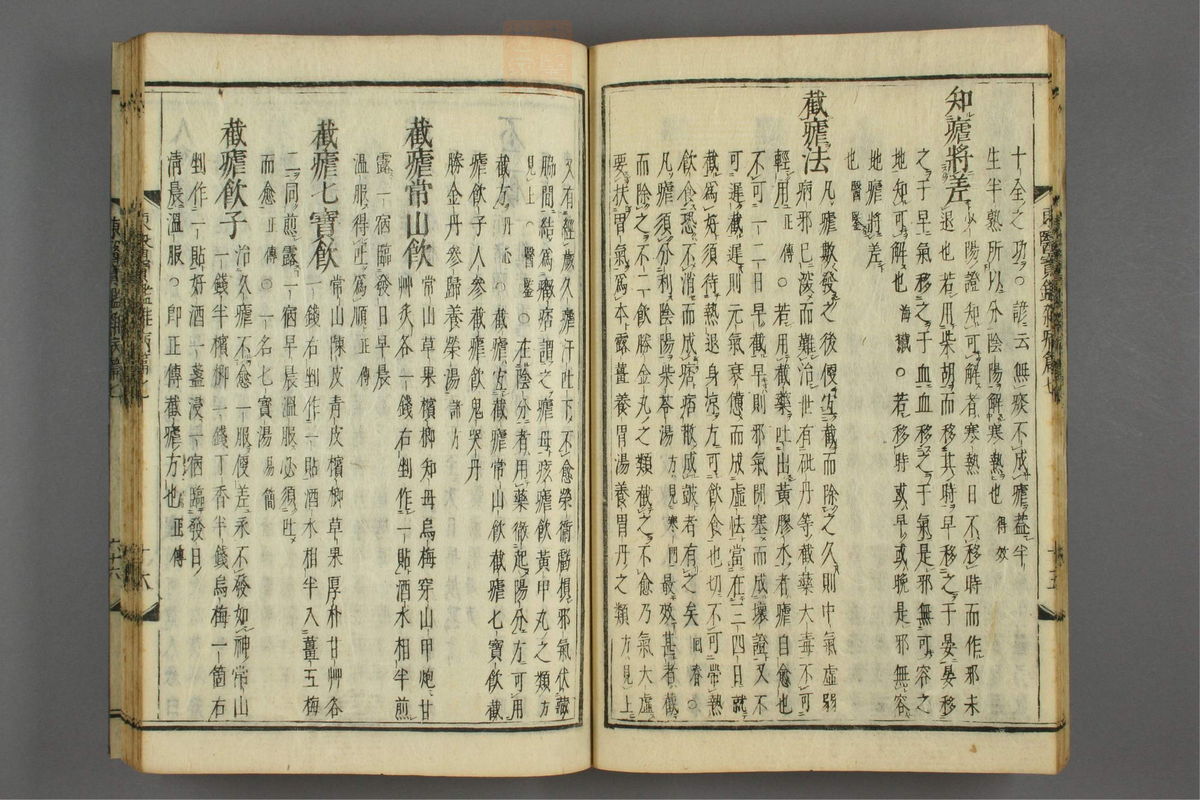 十全之功○諺云無痰不成瘧蓋半
生半熟所以分陰陽解寒熱也得效
知瘧將差少陽證知可解者寒熱日不移時而作邪未
退也若用柴胡而移其時早移之于晏晏移
之于早氣移之于血血移之于氣是邪無可容之
地知可解也海藏○若移時或早或晚是邪無容
地瘧將差
也醫鑒
截瘧法凡瘧數發之後便宜截而除之久則中氣虛弱
病邪已深而難治世有砒丹等截藥大毒不可
輕用正傳○若用截藥吐出黃膠水者瘧自愈也
不可一二日早截早則邪氣閉塞而成壞證又不
可遲截遲則元氣衰憊而成虛怯當在三四日就
截爲好須待熱退身凉方可飮食也切不可帶熱
飮食恐不消而成痞痞散成鼓者有之矣回春○
凡瘧須分利陰陽柴苓湯方見寒門最效甚者截
而除之不二飮勝金丸之類截之不愈乃氣大虛
要扶胃氣爲本露薑養胃湯養胃丹之類方見上
又有經歲久瘧汗吐下不愈榮衛虧損邪氣伏藏
脇間結爲癥痞謂之瘧母痎瘧飮黃甲丸之類方
見上醫鑒○在陰分者用藥徹起陽分方可用
截方丹心宜截瘧常山飮截瘧七寶飮截
瘧飮子人參截瘧飮鬼哭丹
勝金丹參歸養榮湯諸方
截瘧常山飮常山草果檳榔知母烏梅穿山甲炮甘
艸炙各一錢右剉作一貼酒水相半煎
露一宿臨發日早晨
溫服得吐爲順正傳
截瘧七寶飮常山陳皮靑皮檳榔草果厚朴甘艸各
一錢右剉作一貼酒水相半入薑五梅
二同煎露一宿早晨溫服必須吐
而愈正傳○一名七寶湯局方
截瘧飮子治久瘧不愈一服便差永不發如神常山
一錢半檳榔一錢丁香半錢烏梅一箇右
剉作一貼好酒一盞浸一宿臨發日
淸晨溫服○卽正傳截瘧方也正傳